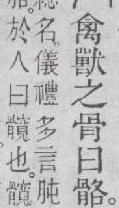 禽獸之骨曰骼。
總名。儀禮多言肫
於人曰髖也。髖